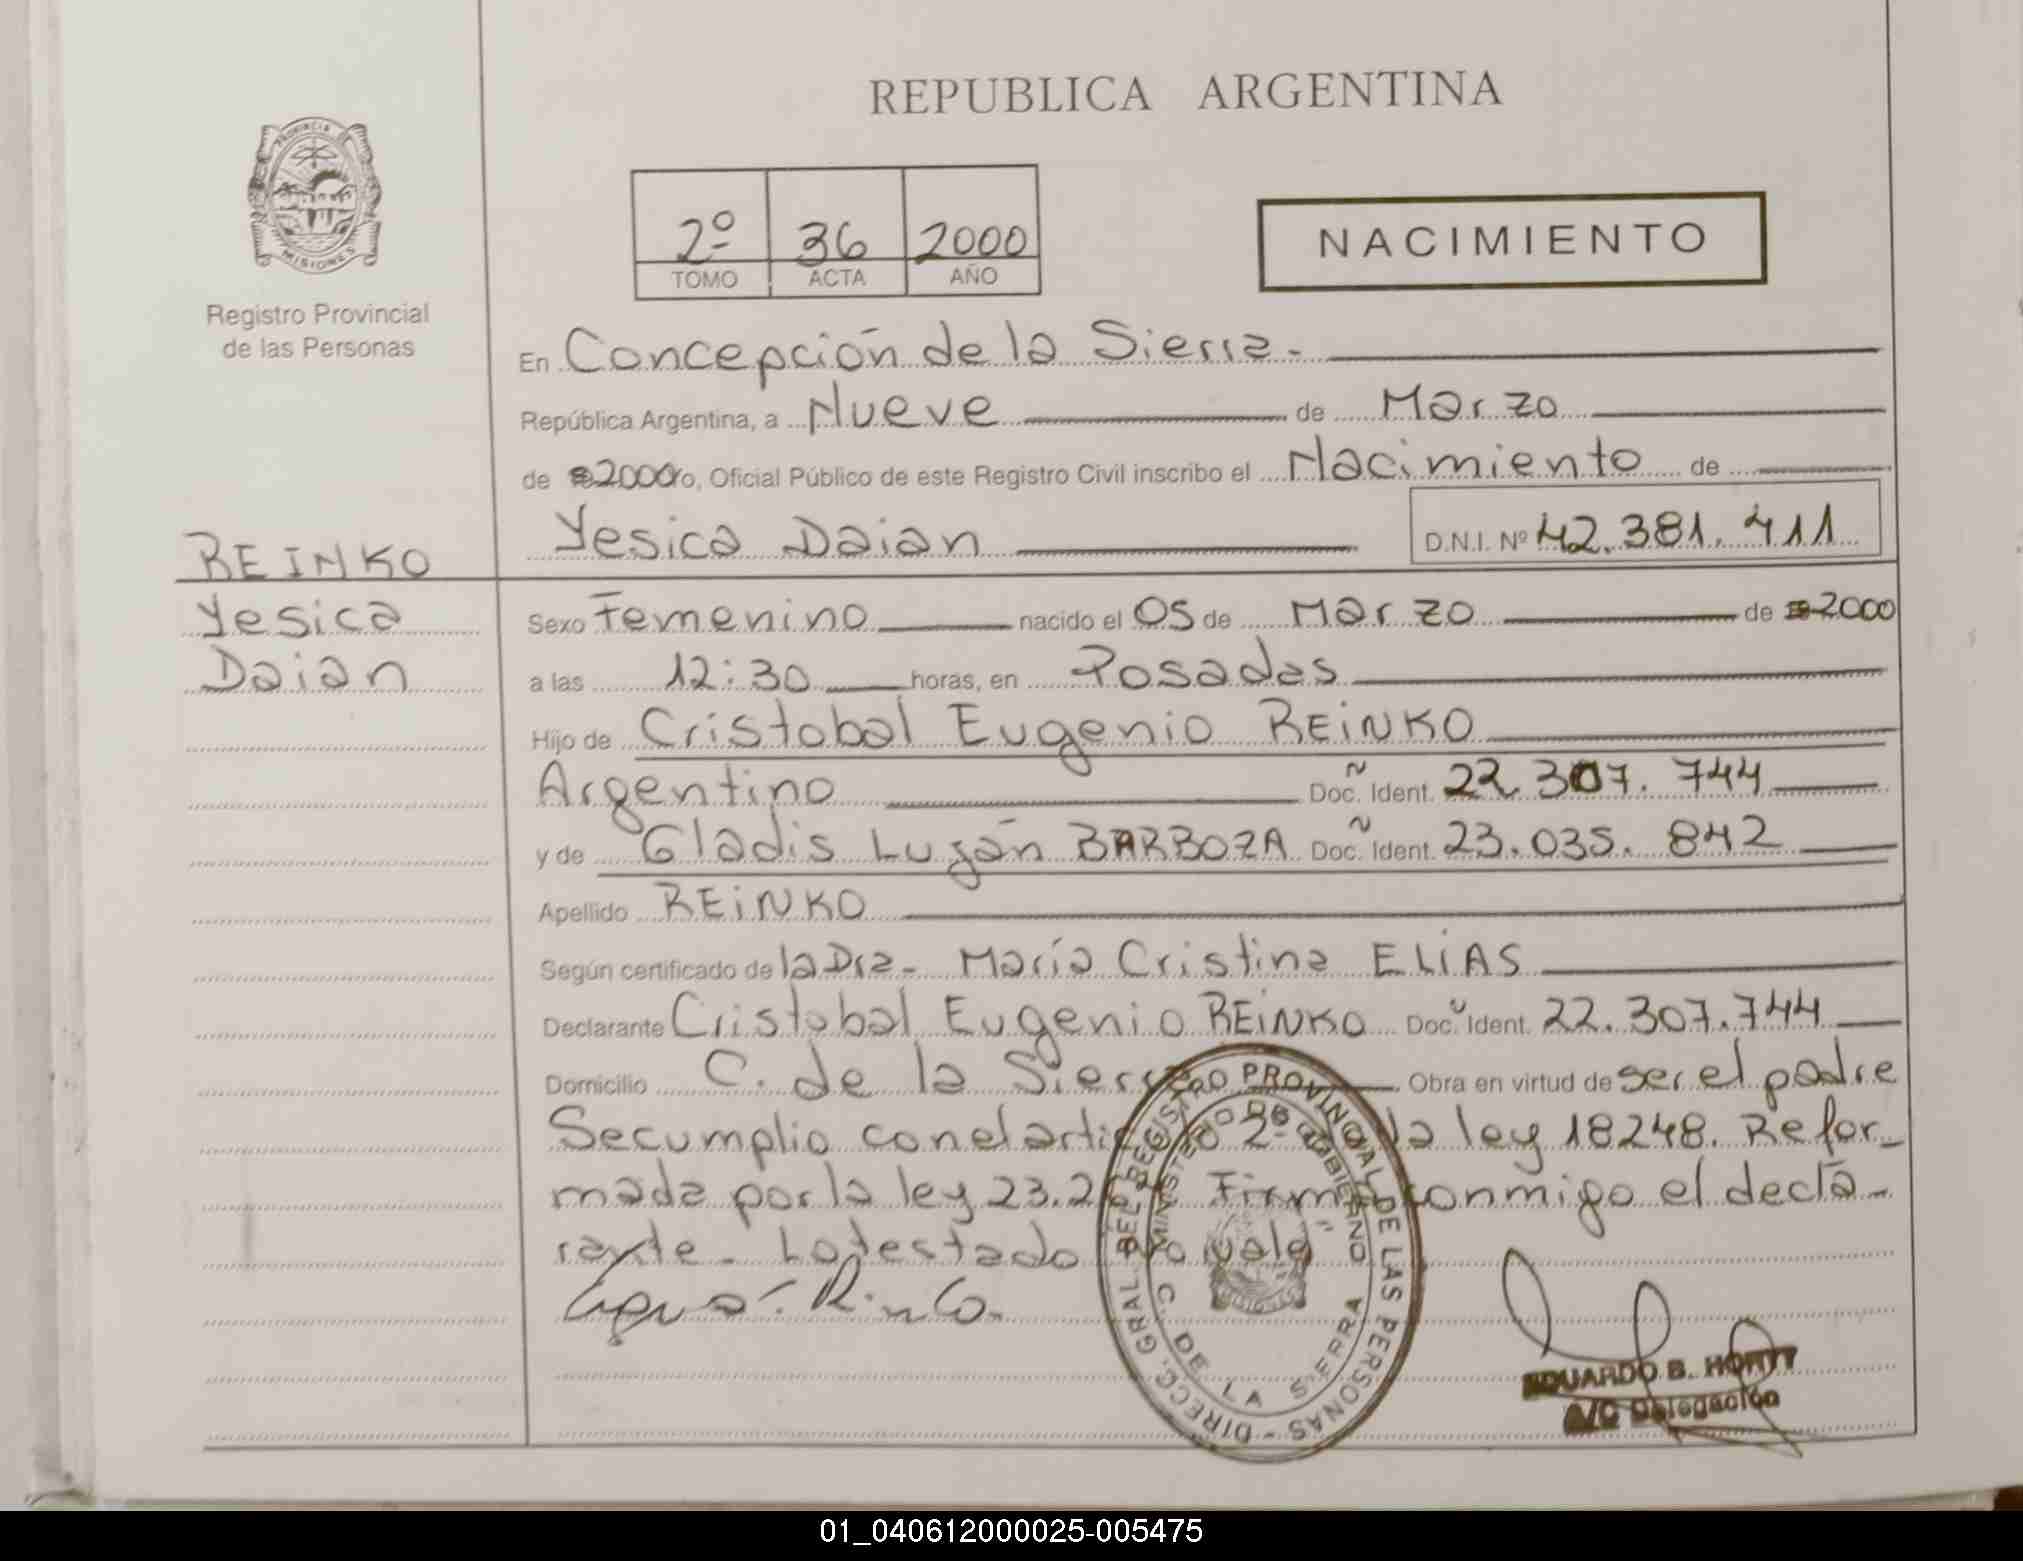 REPUBLICA ARGENTINA
PROVINCIA DE
MISIONES
Registro Provincial
de las Personas
2º 36 2000
TOMO ACTA AÑO
NACIMIENTO
En Concepción de la Sierra.-
República Argentina, a Nueve de Marzo
de 2000 yo, Oficial Público de este Registro Civil inscribo el Nacimiento de
REINKO
Yesica Daian D.N.I. Nº 42.381.411
Yesica
Daian
Sexo Femenino nacido el 05 de Marzo de 2000
a las 12:30 horas, en Posadas
Hijo de Cristobal Eugenio REINKO
Argentino Doc. Ident. 22.307.744
y de Gladis Luján BARBOZA Doc. Ident. 23.035.842
Apellido REINKO
Según certificado de la Dra- María Cristina ELIAS
Declarante Cristobal Eugenio REINKO Doc. Ident. 22.307.744
Domicilio C. de la Sierra Obra en virtud de ser el padre
Se cumplio con el articulo 2º de la ley 18248. Refor-
mada por la ley 23.2 Firma conmigo el decla-
rante- Lo testado "no vale"
DIRECC. GRAL. DEL REGISTRO PROVINCIAL DE LAS PERSONAS -
MINISTERIO DE GOBIERNO
C. DE LA SIERRA
EDUARDO B. HORTT
A/C Delegación
01_040612000025-005475